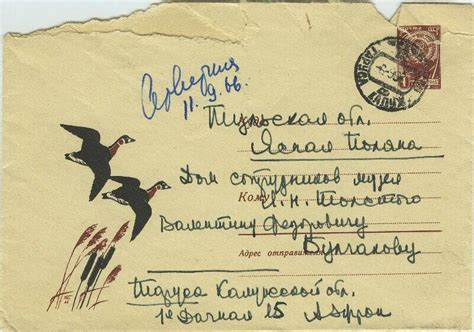 11.9.66
Тульская обл.
Куда
Ясная Поляна
Дом сотрудников музея
Кому
Л. Н. Толстого
Валентину Федоровичу
Булгакову
Адрес отправителя
Таруса Калужской обл.
1я Дачная 15 А Эфрон